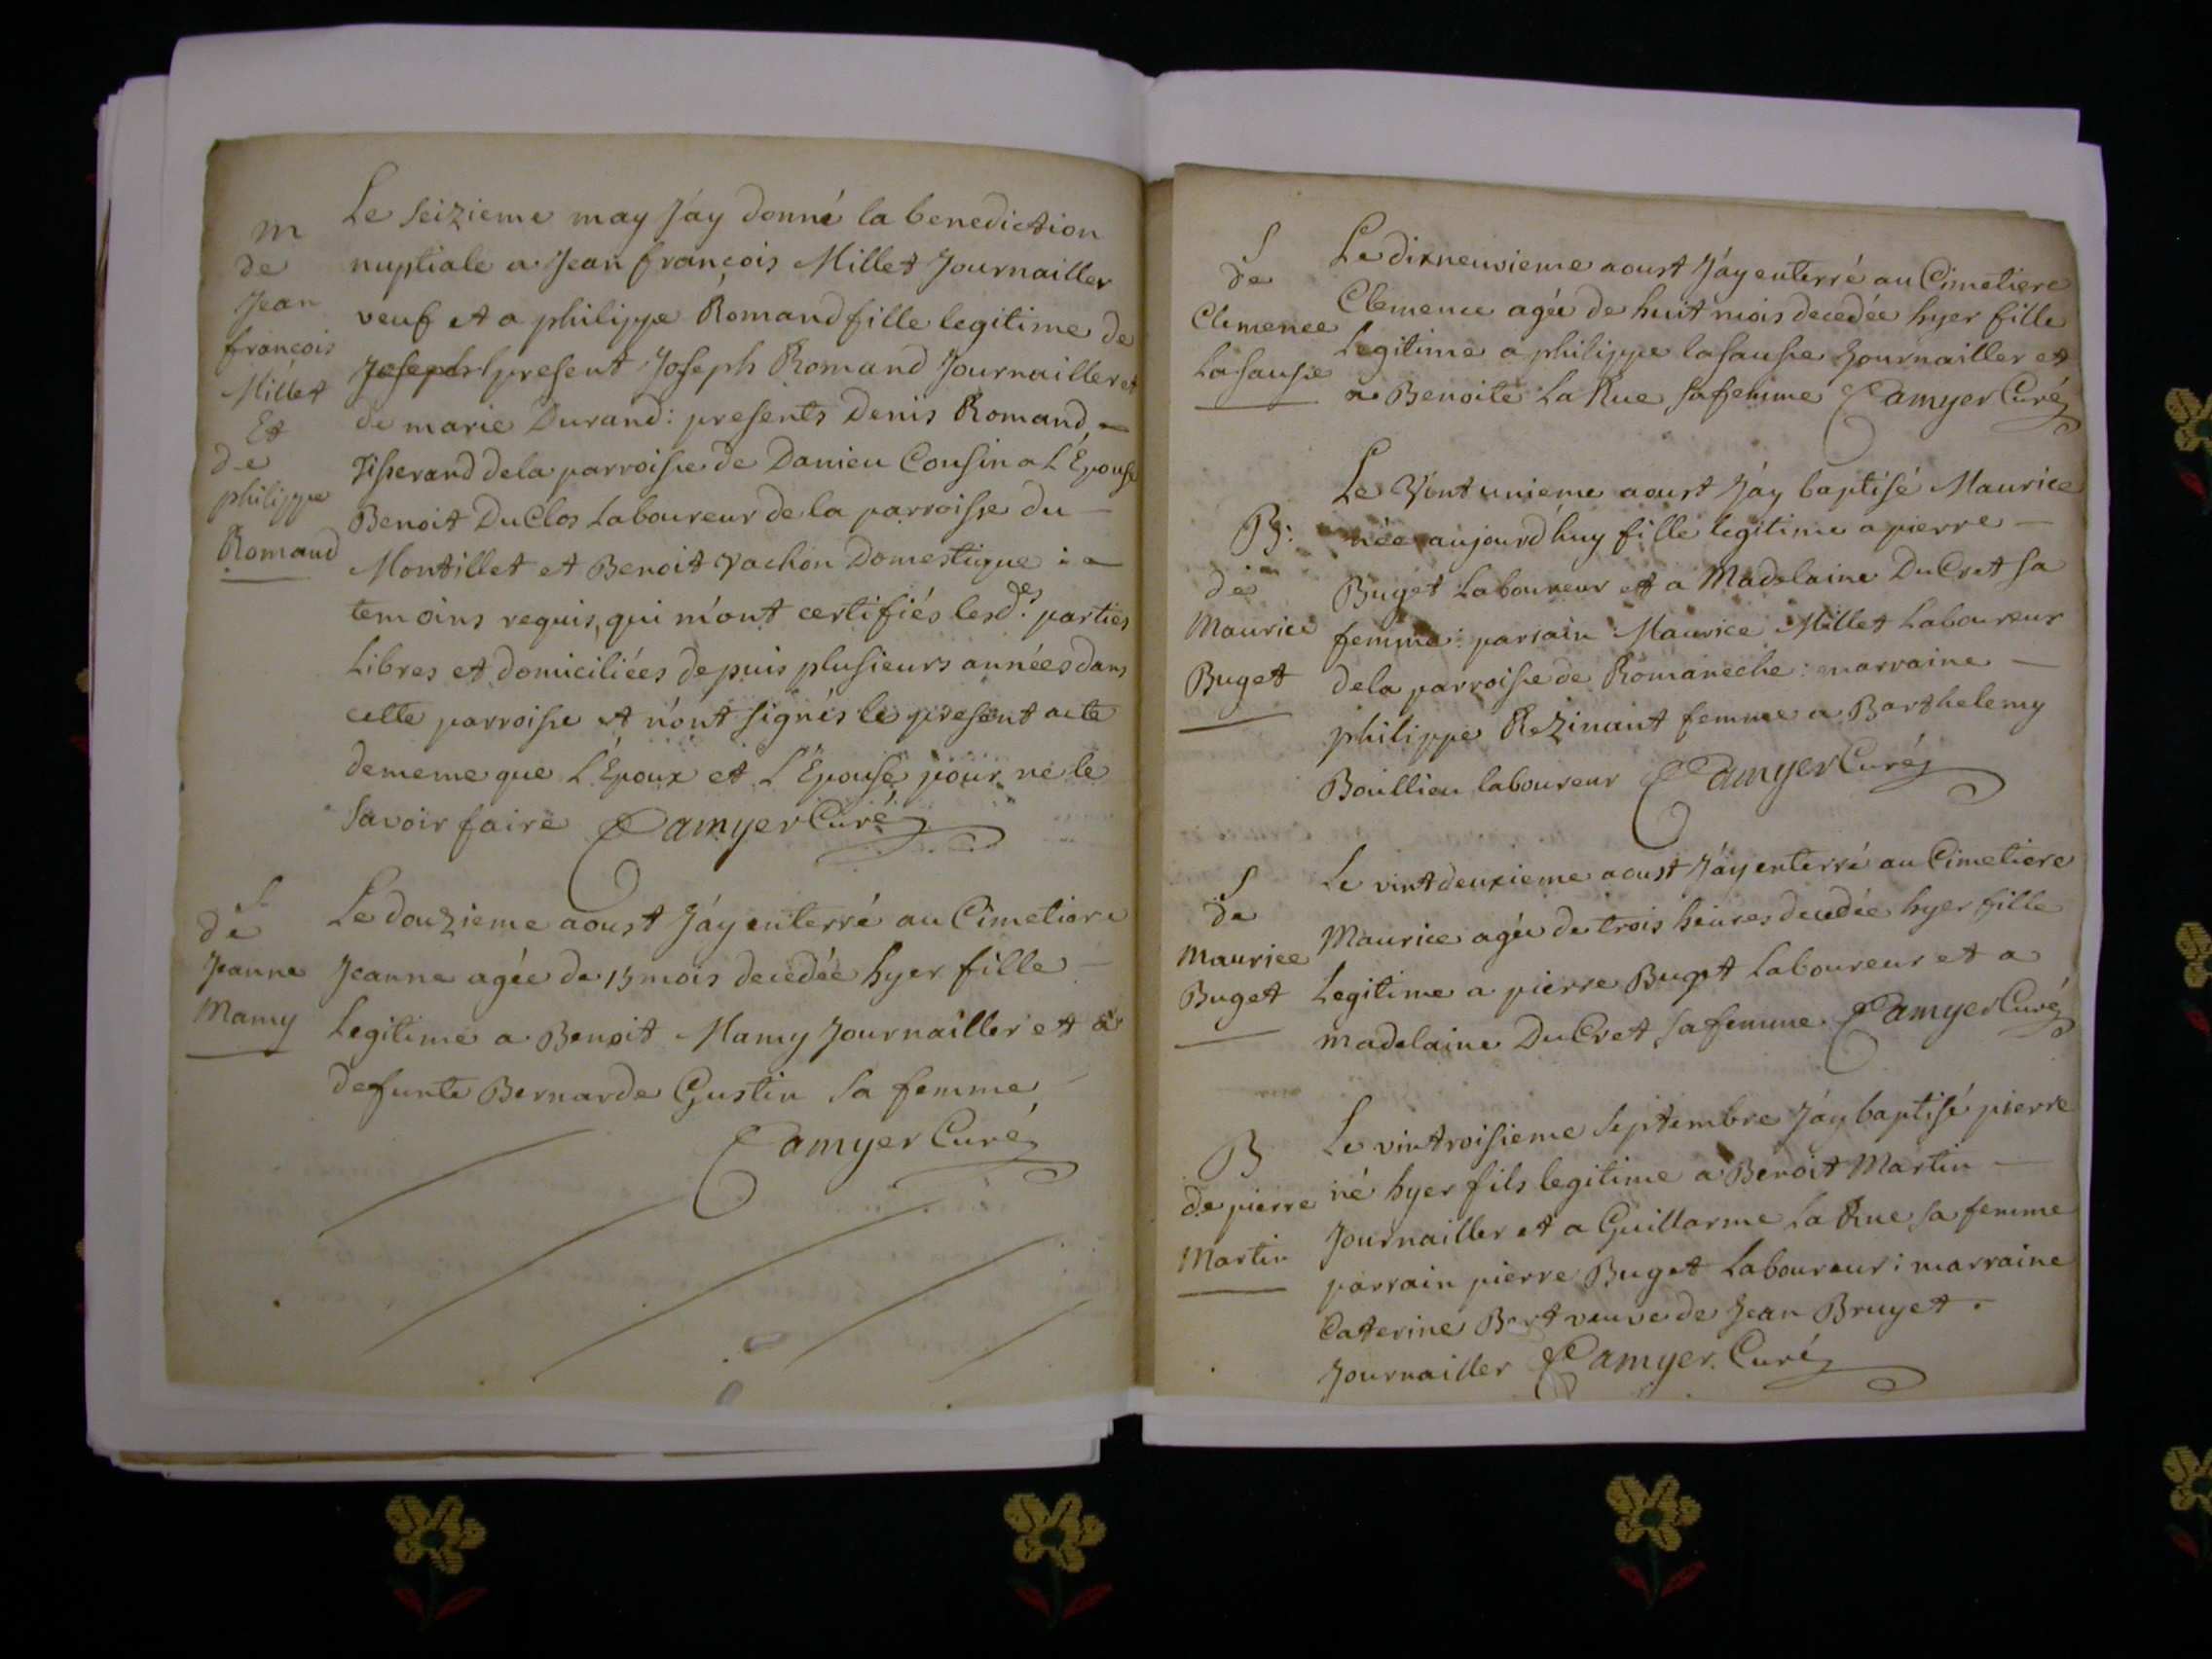 m
de
Jean
françois
Millet
Et
de
philippe
Romand
Le seizieme may J'ay donné la benediction
nuptiale a Jean françois Millet Journailler
veuf et a philippe Romand fille legitime de
Joseph present Joseph Romand Journailler et
de marie Durand: presents Denis Romand
Tisserand dela parroisse de Danieu Cousin a L'Epouse
Benoit DuClos Laboureur de la parroisse du
Montillet et Benoit Vachon Domestique :
temoins requis, qui m'ont certifiés lesd.es parties
Libres et domiciliées depuis plusieurs années dans
cette parroisse et n'ont signés le present acte
dememe que L'Epoux et L'Epouse pour ne le
savoir faire Camyer Curé
S
de
Jeanne
Mamy
Le douzieme aoust J'ay enterré au Cimetiere
Jeanne agée de 15 mois decedée hyer fille
Legitime a Benoit Mamy Journailler et a
defunte Bernarde Gustin sa femme
Camyer Curé
S
de
Clemence
Lasausse
Le dixneuvieme aoust J'ay enterré au Cimetiere
Clemence agée de huit mois decedée hyer fille
Legitime a philippe lasausse Journailler et
a Benoite La Rue sa femme Camyer Curé
B:
de
Maurice
Buget
Le Vint unieme aoust J'ay baptisé Maurice
née aujourd'huy fille legitime a pierre
Buget Laboureur et a Madelaine DuCret sa
femme: parrain Maurice Millet Laboureur
dela parroisse de Romaneche: marraine
philippe Rezinant femme a Barthelemy
Boullieu laboureur Camyer Curé
S
de
Maurice
Buget
Le vint deuxieme aoust J'ay enterré au Cimetiere
Maurice agée de trois heures decedée hyer fille
Legitime a pierre Buget Laboureur et a
madelaine DuCret sa femme. Camyer Curé
B
de pierre
Martin
Le vintroisieme septembre J'ay baptisé pierre
né hyer fils legitime a Benoit Martin
Journailler et a Guillarme La Rue sa femme
parrain pierre Buget Laboureur: marraine
Caterine Bert veuve de Jean Bruyet.
Journailler Camyer Curé